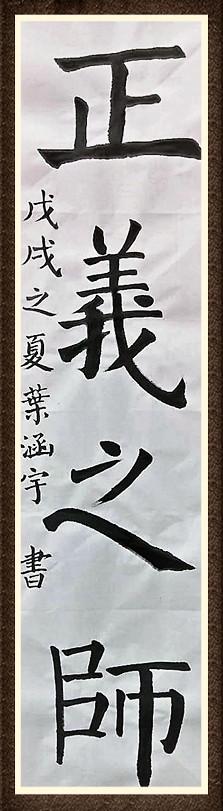 正義之師
戊戌之夏葉涵宇書